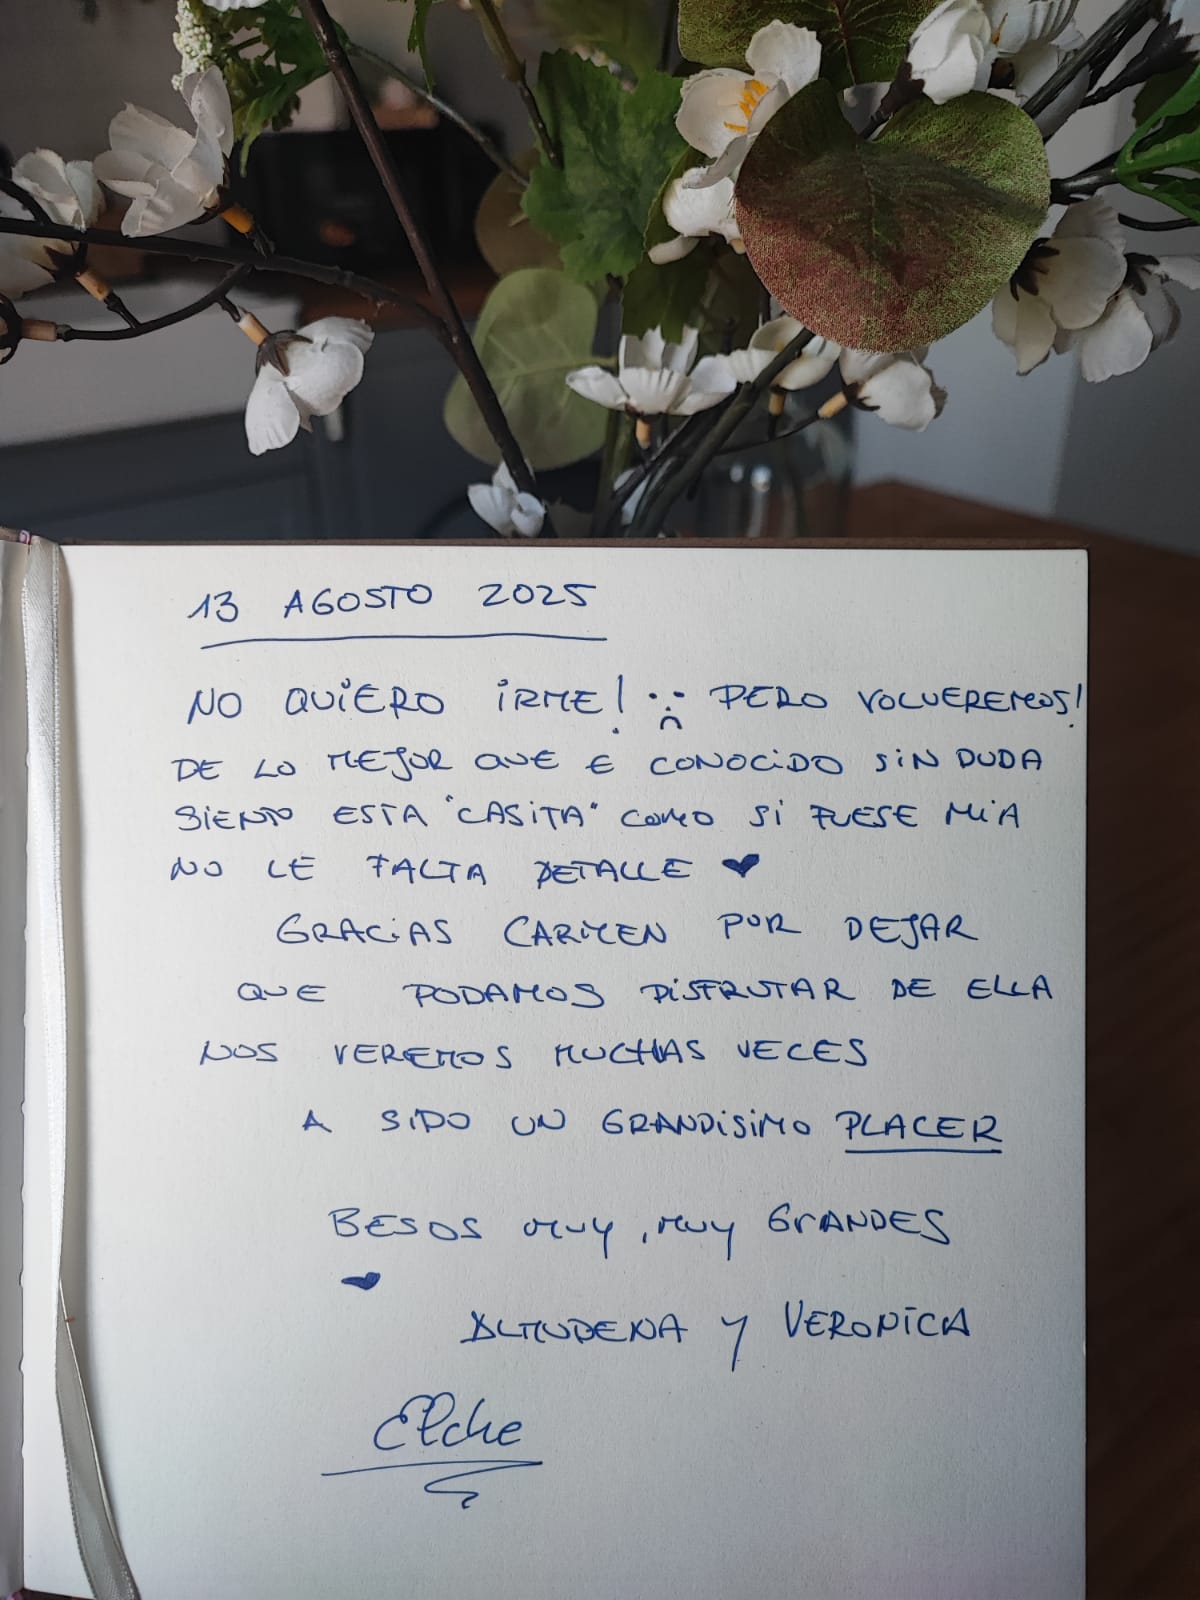 13 AGOSTO 2025
NO QUIERO IRME! :( PERO VOLVEREMOS!
DE LO MEJOR QUE E CONOCIDO SIN DUDA
SIENTO ESTA "CASITA" COMO SI FUESE MIA
NO LE FALTA DETALLE ♥
GRACIAS CARMEN POR DEJAR
QUE PODAMOS DISFRUTAR DE ELLA
NOS VEREMOS MUCHAS VECES
A SIDO UN GRANDISIMO PLACER
BESOS MUY, MUY GRANDES
♥
ALMUDENA Y VERONICA
Elche